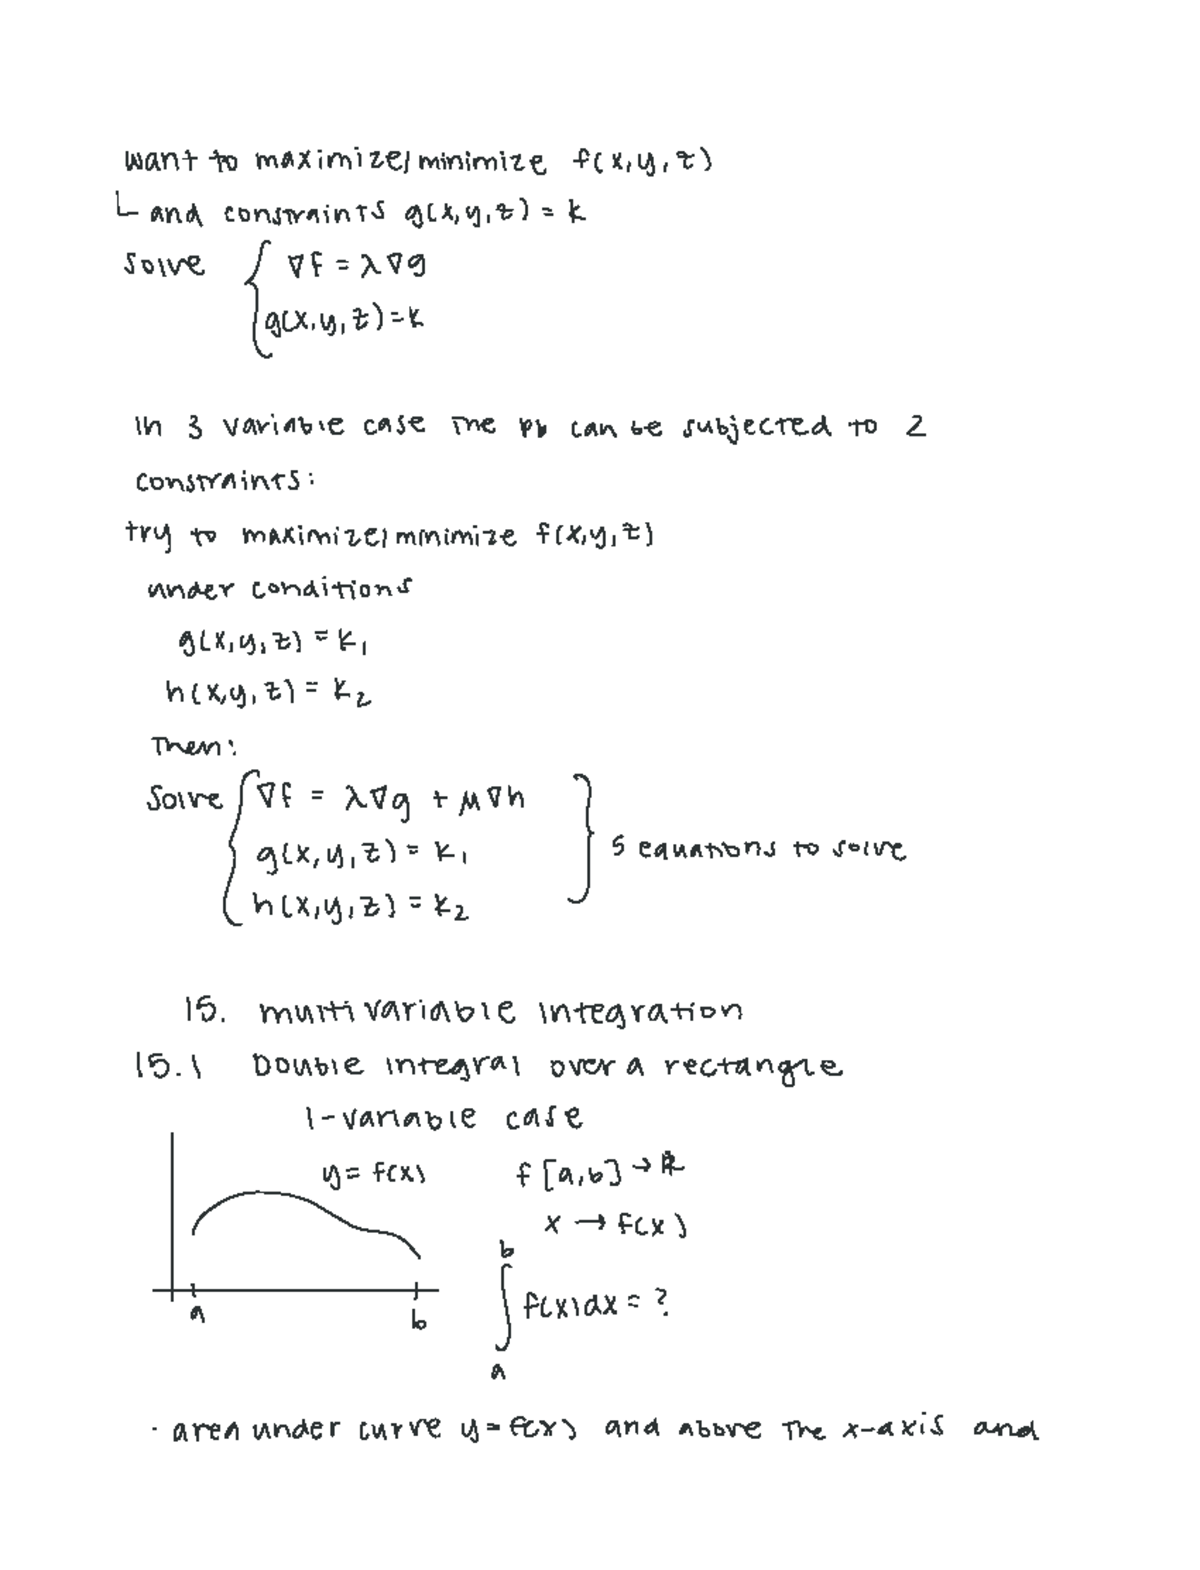 want to maximize/minimize f(x,y,z)
and constraints g(x,y,z) = k
Solve { ∇f = λ∇g
g(x,y,z) = k
In 3 variable case the pb can be subjected to 2
constraints:
try to maximize/minimize f(x,y,z)
under conditions
g(x,y,z) = k₁
h(x,y,z) = k₂
Then:
Solve { ∇f = λ∇g + μ∇h
g(x,y,z) = k₁ } 5 equations to solve
h(x,y,z) = k₂
15. multivariable integration
15.1 Double integral over a rectangle
1-variable case
y = f(x) f [a,b] → ℝ
x → f(x)
∫ₐᵇ f(x)dx = ?
a b
· area under curve y = f(x) and above the x-axis and